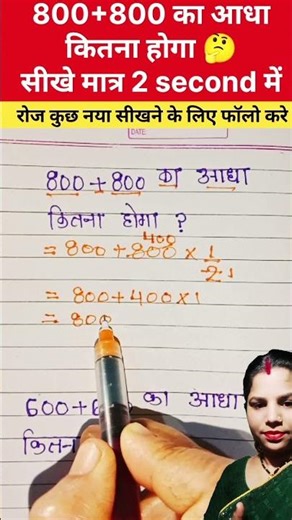 800+800 का आधा
कितना होगा 🤔
सीखे मात्र 2 second में
रोज कुछ नया सीखने के लिए फॉलो करे
DATE:
800 + 800 का आधा
कितना होगा ?
400
= 800 + 800 × 1/2 1
= 800 + 400 × 1
= 800
600 + 6 का आधा